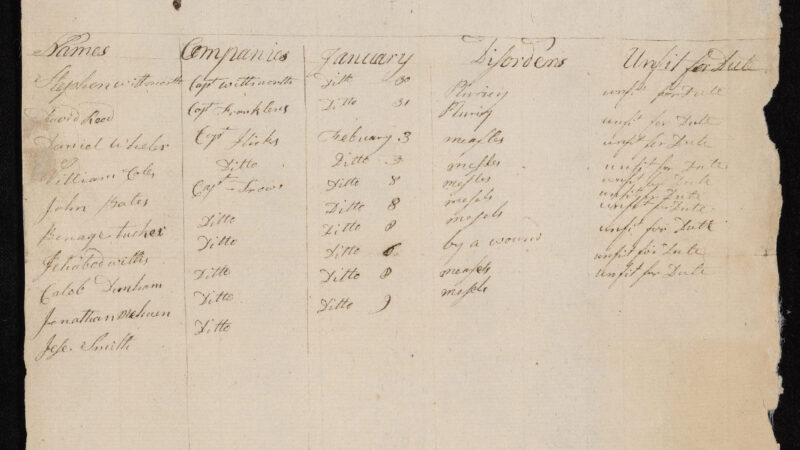 Names Companies January Disorders Unfit for Dute
Stephen Capt Ditto 30 Plurisy unfit for Dute
Reed Capt Franklens Ditto 31 Plurisy unfit for Dute
Daniel Wheler Capt Hicks Febuary 3 measles unfit for Dute
William Cole Ditto Ditto 3 mesles unfit for Dute
John Bates Capt Ditto 8 mesles unfit for Dute
Benage tucker Ditto Ditto 8 mesels unfit for Dute
Ditto Ditto 8 mesels unfit for Dute
Calob Dunham Ditto Ditto 6 by a wound unfit for Dute
Jonathan Ditto Ditto 8 measels unfit for Dute
Jese Smith Ditto Ditto 9 mesels unfit for Dute